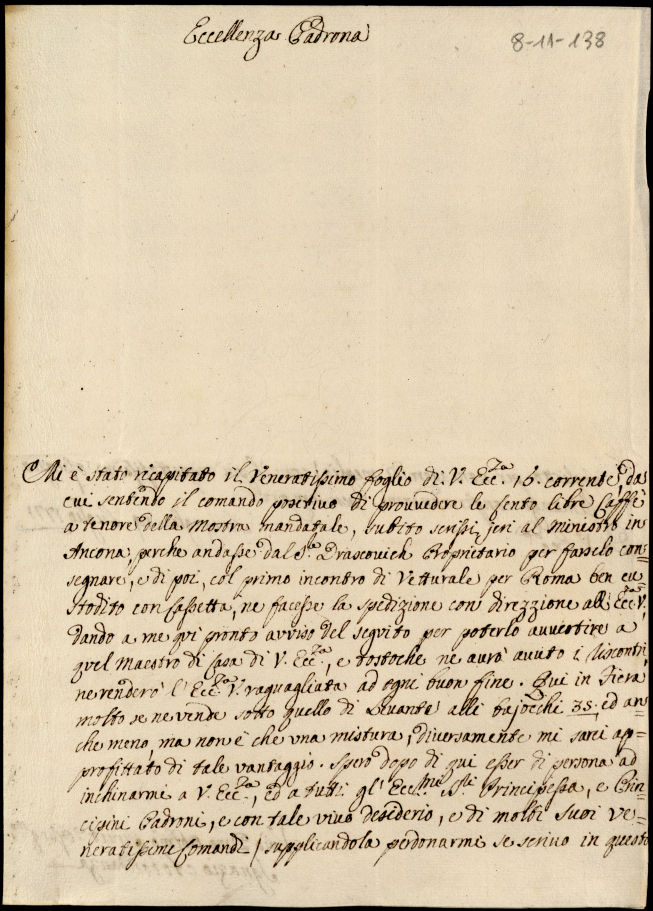 Eccellenza Padrona
8-11-138
Mi è stato ricapitato il Veneratissimo foglio di V. Ecc.za 16. corrente, da
cui sentendo il comando positivo di provvedere le cento libre Caffè
a tenore della mostra mandatale, subito scrissi jeri al Ministro in
Ancona, perche andasse dal S.r Drascovich Proprietario per farselo con=
segnare, e di poi, col primo incontro di Vetturale per Roma ben cu=
stodito con Cassetta, ne facesse la spedizione con direzzione all' Ecc.za V.
dando a me qui pronto avviso del seguito per poterlo avvertire a
quel Maestro di Casa di V. Ecc.za, e tostoche ne aurò avuto i riscontri,
ne renderò l'Ecc.za V. raguagliata ad ogni buon fine. Qui in Fiera
molto se ne vende sotto quello di Levante alli bajocchi 35, ed an=
che meno, ma non è che una mistura, diversamente mi sarei ap=
profittato di tale vantaggio. Spero dopo di qui esser di persona ad
inchinarmi a V. Ecc.za, ed a tutti gl' Ecc.mi S.ri Principessa, e Prin=
cipini Padroni, e con tale vivo desiderio, e di molti suoi ve=
neratissime Comandi / supplicandola perdonarmi se scrivo in questo